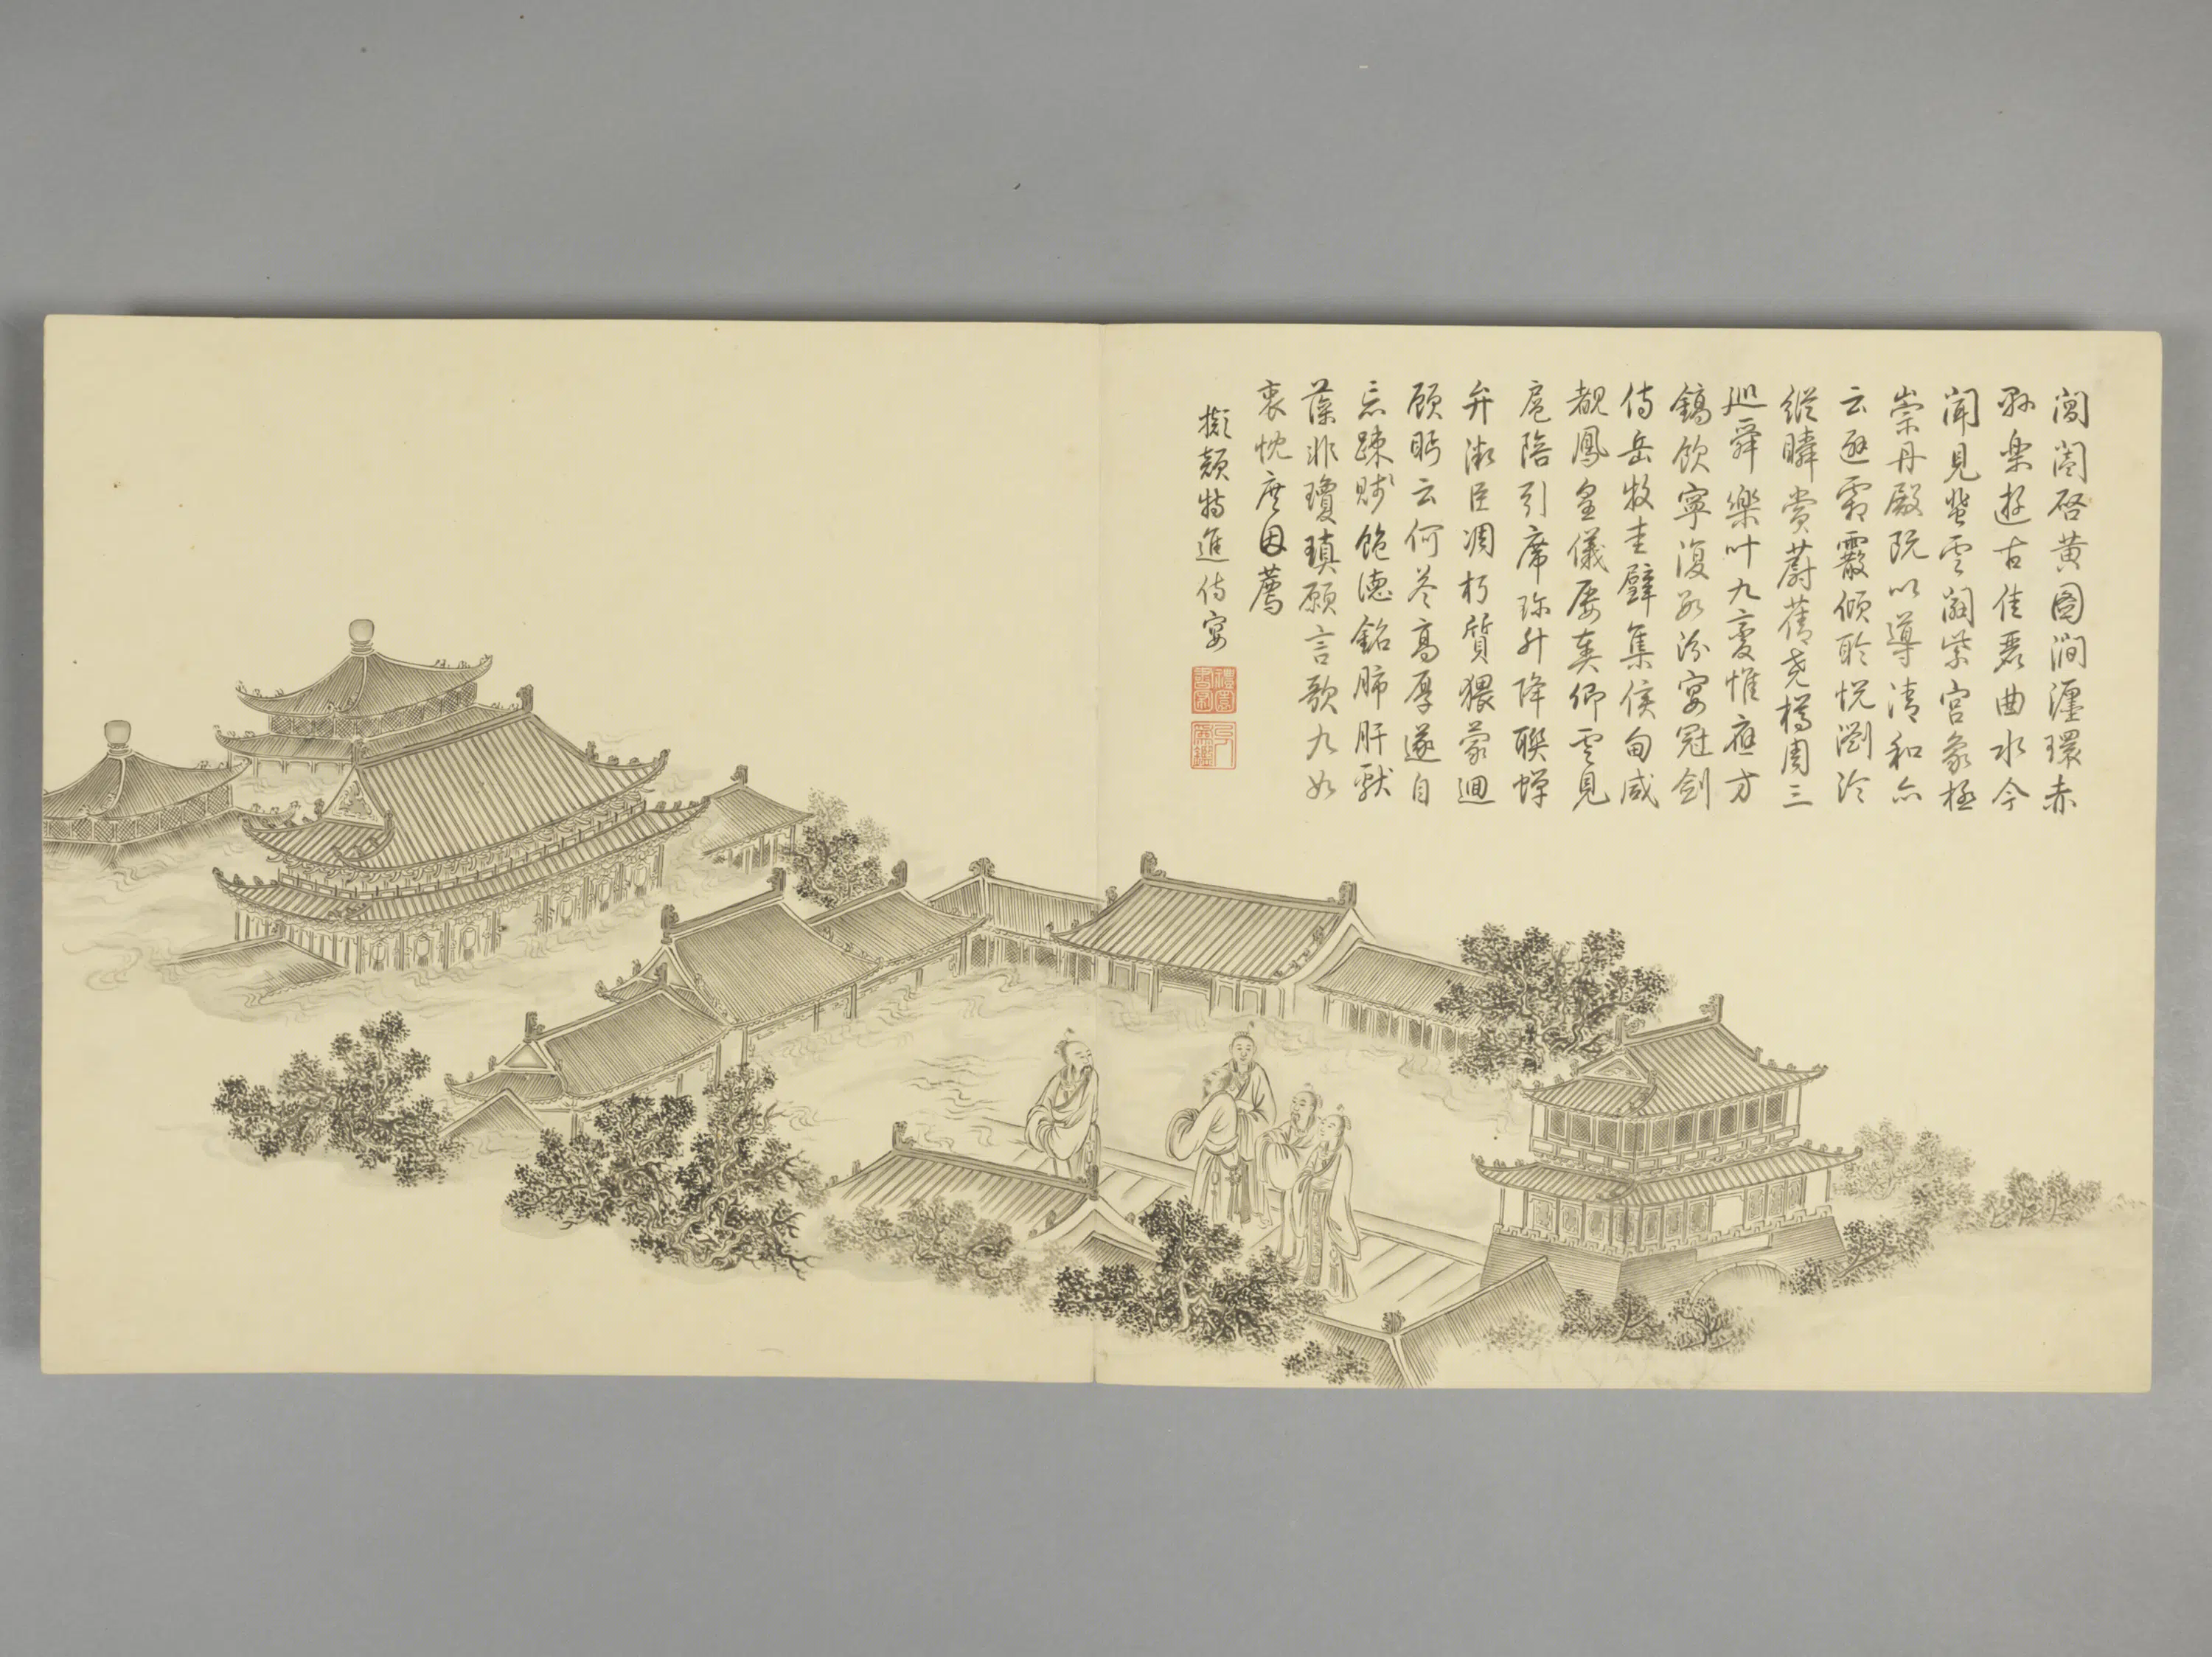 閶闔啓黄圖澗瀍環赤
縣樂遊古佳麗曲水今
聞見蜚雲闢紫宮象極
崇丹殿既以導清和亦
云避霜霰傾聆悅瀏泠
縱瞬賞蔚蒨堯樽周三
巡舜樂叶九變惟應方
鎬飲寧復數汾宴冠劍
侍岳牧圭璧集侯甸咸
覩鳳皇儀屢奏卿雲見
扈陪引席珍升降聯蟬
弁微臣凋朽質猥蒙迴
顧眄云何答高厚遂自
忘疎賤飽德銘肺肝獻
藻非瓊瑱願言歌九如
衷忱庶因薦
擬顏特進侍宴